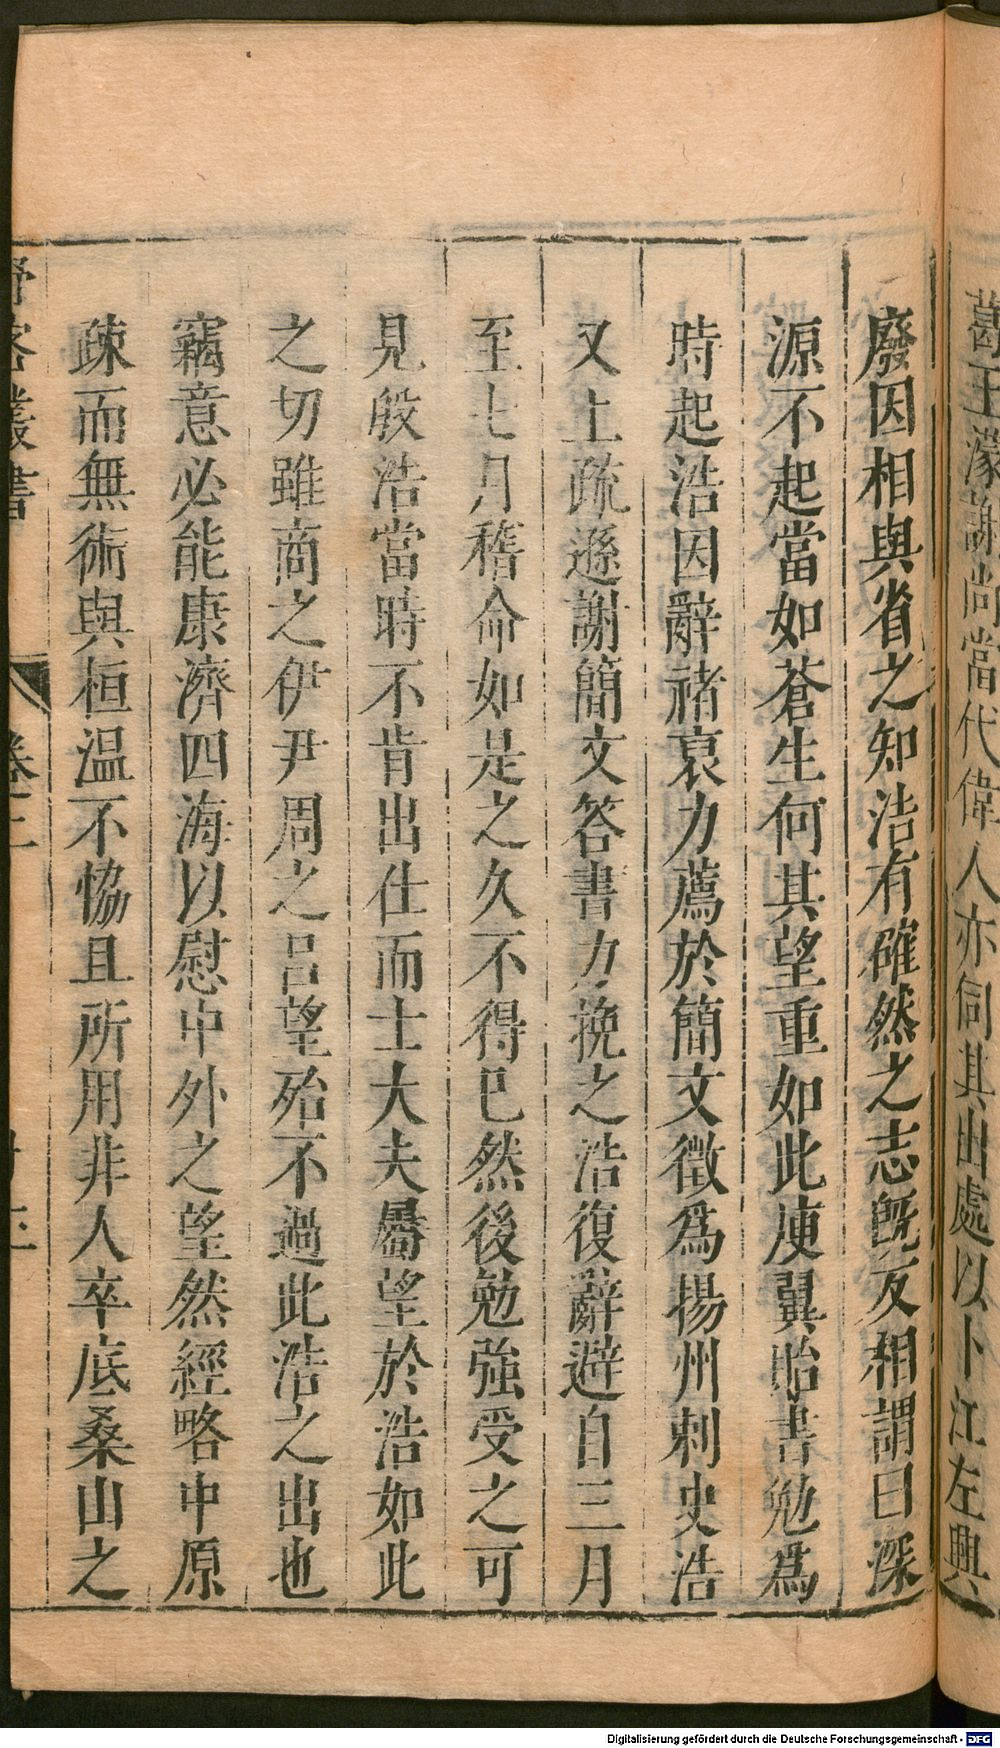 葛王濛謝尚當代偉人亦伺其出處以卜江左興
廢因相與省之知浩有確然之志旣反相謂曰深
源不起當如蒼生何其望重如此庾翼貽書勉爲
時起浩因辭褚裒力薦於簡文徵爲揚州刺史浩
又上疏遜謝簡文答書力挽之浩復辭避自三月
至七月稽命如是之久不得已然後勉強受之可
見殷浩當時不肯出仕而士大夫屬望於浩如此
之切雖商之伊尹周之呂望殆不過此浩之出也
竊意必能康濟四海以慰中外之望然經略中原
疎而無術與桓溫不恊且所用非人卒底桑山之
客叢書 卷二
Digitalisierung gefördert durch die Deutsche Forschungsgemeinschaft - DFG